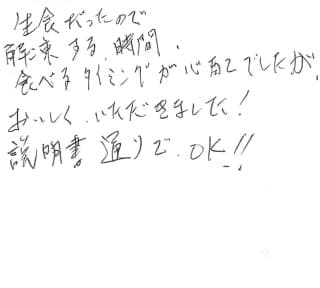 生食だったので
解凍する時間、
食べるタイミングが心配でしたが、
おいしくいただきました!
説明書通りで、OK!!